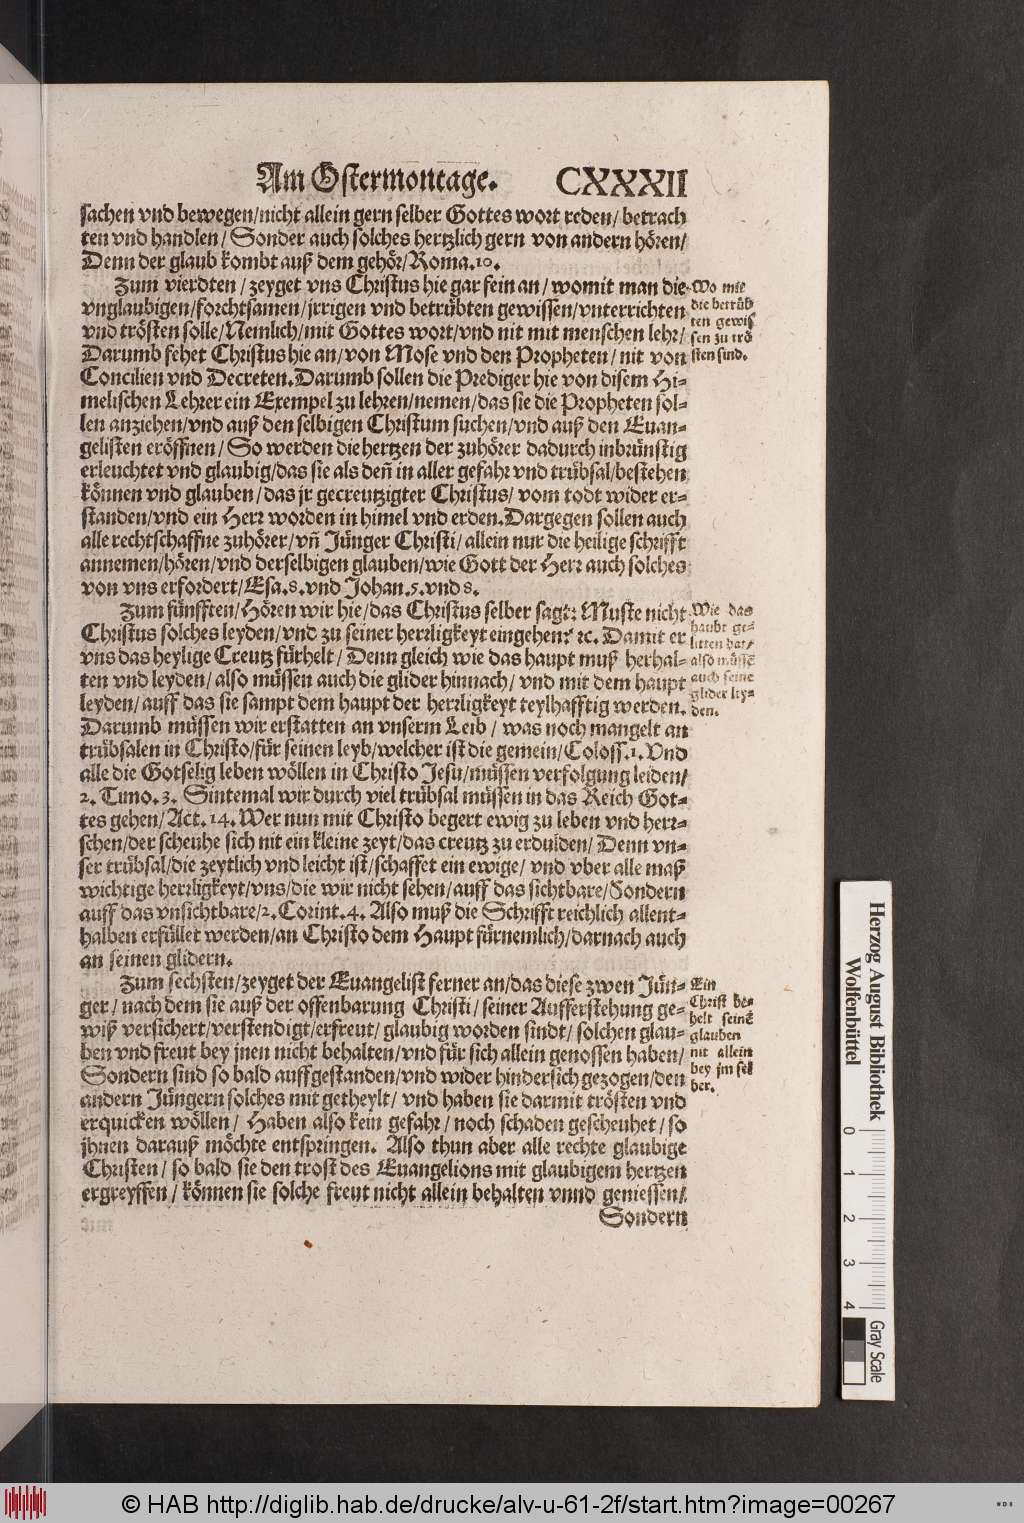 Am Ostermontage. CXXXII
sachen vnd bewegen/nicht allein gern selber Gottes wort reden/ betrach
ten vnd handlen/ Sonder auch solches hertzlich gern von andern hören/
Denn der glaub kombt auß dem gehör/Roma.10.
Zum vierdten/ zeyget vns Christus hie gar fein an/ womit man die
vnglaubigen/forchtsamen/jrrigen vnd betrübten gewissen/vnterrichten
vnd trösten solle/Nemlich/mit Gottes wort/vnd nit mit menschen lehr/
Darumb fehet Christus hie an/von Mose vnd den Propheten/ nit von
Concilien vnd Decreten.Darumb sollen die Prediger hie von disem Hi-
melischen Lehrer ein Exempel zu lehren/nemen/das sie die Propheten sol-
len anziehen/vnd auß den selbigen Christum suchen/vnd auß den Euan-
gelisten eröffnen/ So werden die hertzen der zuhörer dadurch inbrünstig
erleuchtet vnd glaubig/das sie als deñ in aller gefahr vnd trübsal/bestehen
können vnd glauben/das jr gecreutzigter Christus/ vom todt wider er-
standen/vnd ein Herr worden in himel vnd erden.Dargegen sollen auch
alle rechtschaffne zuhörer/vñ Jünger Christi/ allein nur die heilige schrifft
annemen/hören/vnd derselbigen glauben/wie Gott der Herr auch solches
von vns erfordert/Esa.8.vnd Johan.5.vnd 8.
Wo mit
die betrüb
ten gewis
sen zu trö
sten sind.
Zum fünfften/Hören wir hie/das Christus selber sagt: Muste nicht
Christus solches leyden/vnd zu seiner herrligkeyt eingehen? ꝛc. Damit er
vns das heylige Creutz fürhelt/ Denn gleich wie das haupt muß herhal-
ten vnd leyden/ also müssen auch die glider hinnach/ vnd mit dem haupt
leyden/ auff das sie sampt dem haupt der herrligkeyt teylhafftig werden.
Darumb müssen wir erstatten an vnserm Leib/ was noch mangelt an
trübsalen in Christo/für seinen leyb/welcher ist die gemein/Coloss.1.Vnd
alle die Gotselig leben wöllen in Christo Jesu/müssen verfolgung leiden/
2. Timo. 3. Sintemal wir durch viel trübsal müssen in das Reich Got-
tes gehen/Act. 14.Wer nun mit Christo begert ewig zu leben vnd herr-
schen/der scheuhe sich nit ein kleine zeyt/das creutz zu erdulden/ Denn vn-
ser trübsal/die zeytlich vnd leicht ist/schaffet ein ewige/ vnd vber alle maß
wichtige herrligkeyt/vns/die wir nicht sehen/auff das sichtbare/Sondern
auff das vnsichtbare/2.Corint.4. Also muß die Schrifft reichlich allent-
halben erfüllet werden/an Christo dem Haupt fürnemlich/darnach auch
an seinen glidern.
Wie das
haubt ge-
litten hat/
also müssē
auch seine
glider ley-
den.
Zum sechsten/zeyget der Euangelist ferner an/das diese zwen Jün-
ger/ nach dem sie auß der offenbarung Christi/ seiner Aufferstehung ge-
wiß versichert/verstendigt/erfreut/ glaubig worden sindt/ solchen glau-
ben vnd freut bey jnen nicht behalten/vnd für sich allein genossen haben/
Sondern sind so bald auffgestanden/vnd wider hindersich gezogen/den
andern Jüngern solches mit getheylt/ vnd haben sie darmit trösten vnd
erquicken wöllen/ Haben also kein gefahr/ noch schaden gescheuhet/ so
jhnen darauß möchte entspringen. Also thun aber alle rechte glaubige
Christen/ so bald sie den trost des Euangelions mit glaubigem hertzen
ergreyffen/ können sie solche freut nicht allein behalten vnnd geniessen/
Sondern
Ein
Christ be-
helt seinē
glauben
nit allein
bey jm sel
ber.
Herzog August Bibliothek
Wolfenbüttel
0 1 2 3 4
Gray Scale
© HAB http://diglib.hab.de/drucke/alv-u-61-2f/start.htm?image=00267